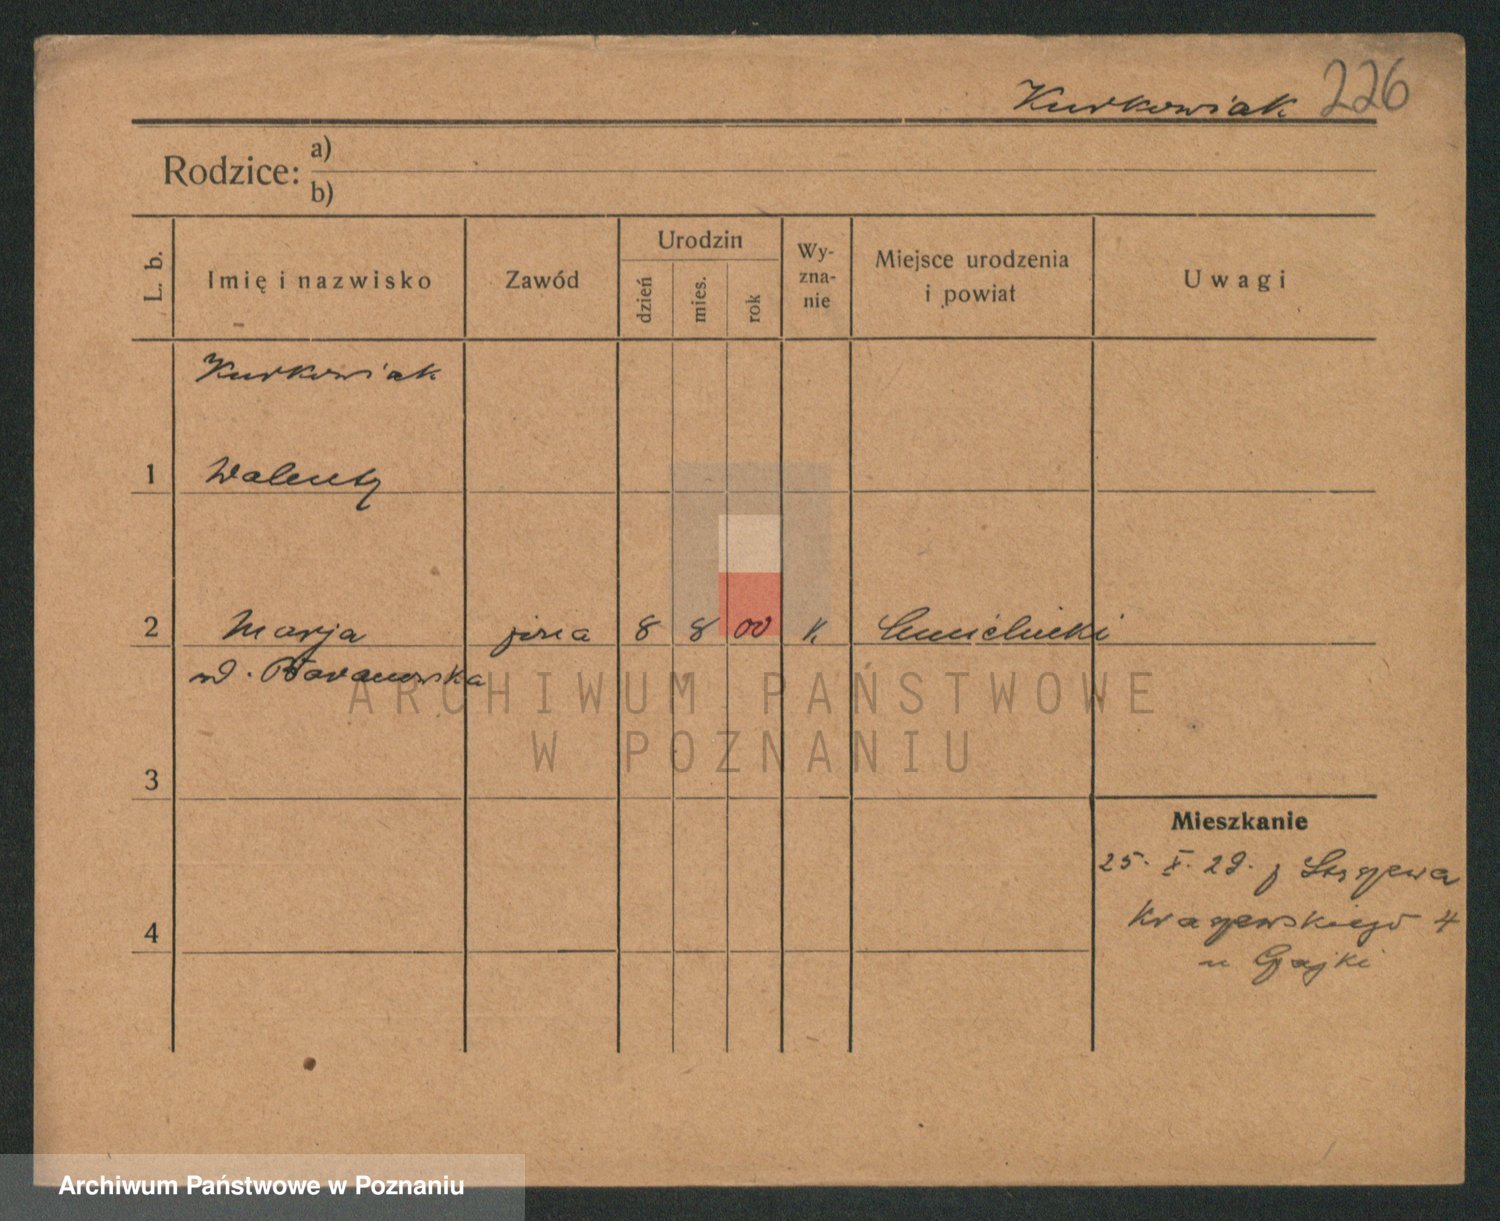 Kurkowiak 226
Rodzice: a)
b)
L. b.
Imię i nazwisko
Zawód
Urodzin
dzień
mies.
rok
Wy-
zna-
nie
Miejsce urodzenia
i powiat
Uwagi
Kurkowiak
1 Walenty
2 Marja żona 8 8 00 k.
Baranowska
3
Mieszkanie
25. X. 29. z
Kraszewskiego 4
u Gajki
4
ARCHIWUM PAŃSTWOWE
W POZNANIU
Archiwum Państwowe w Poznaniu